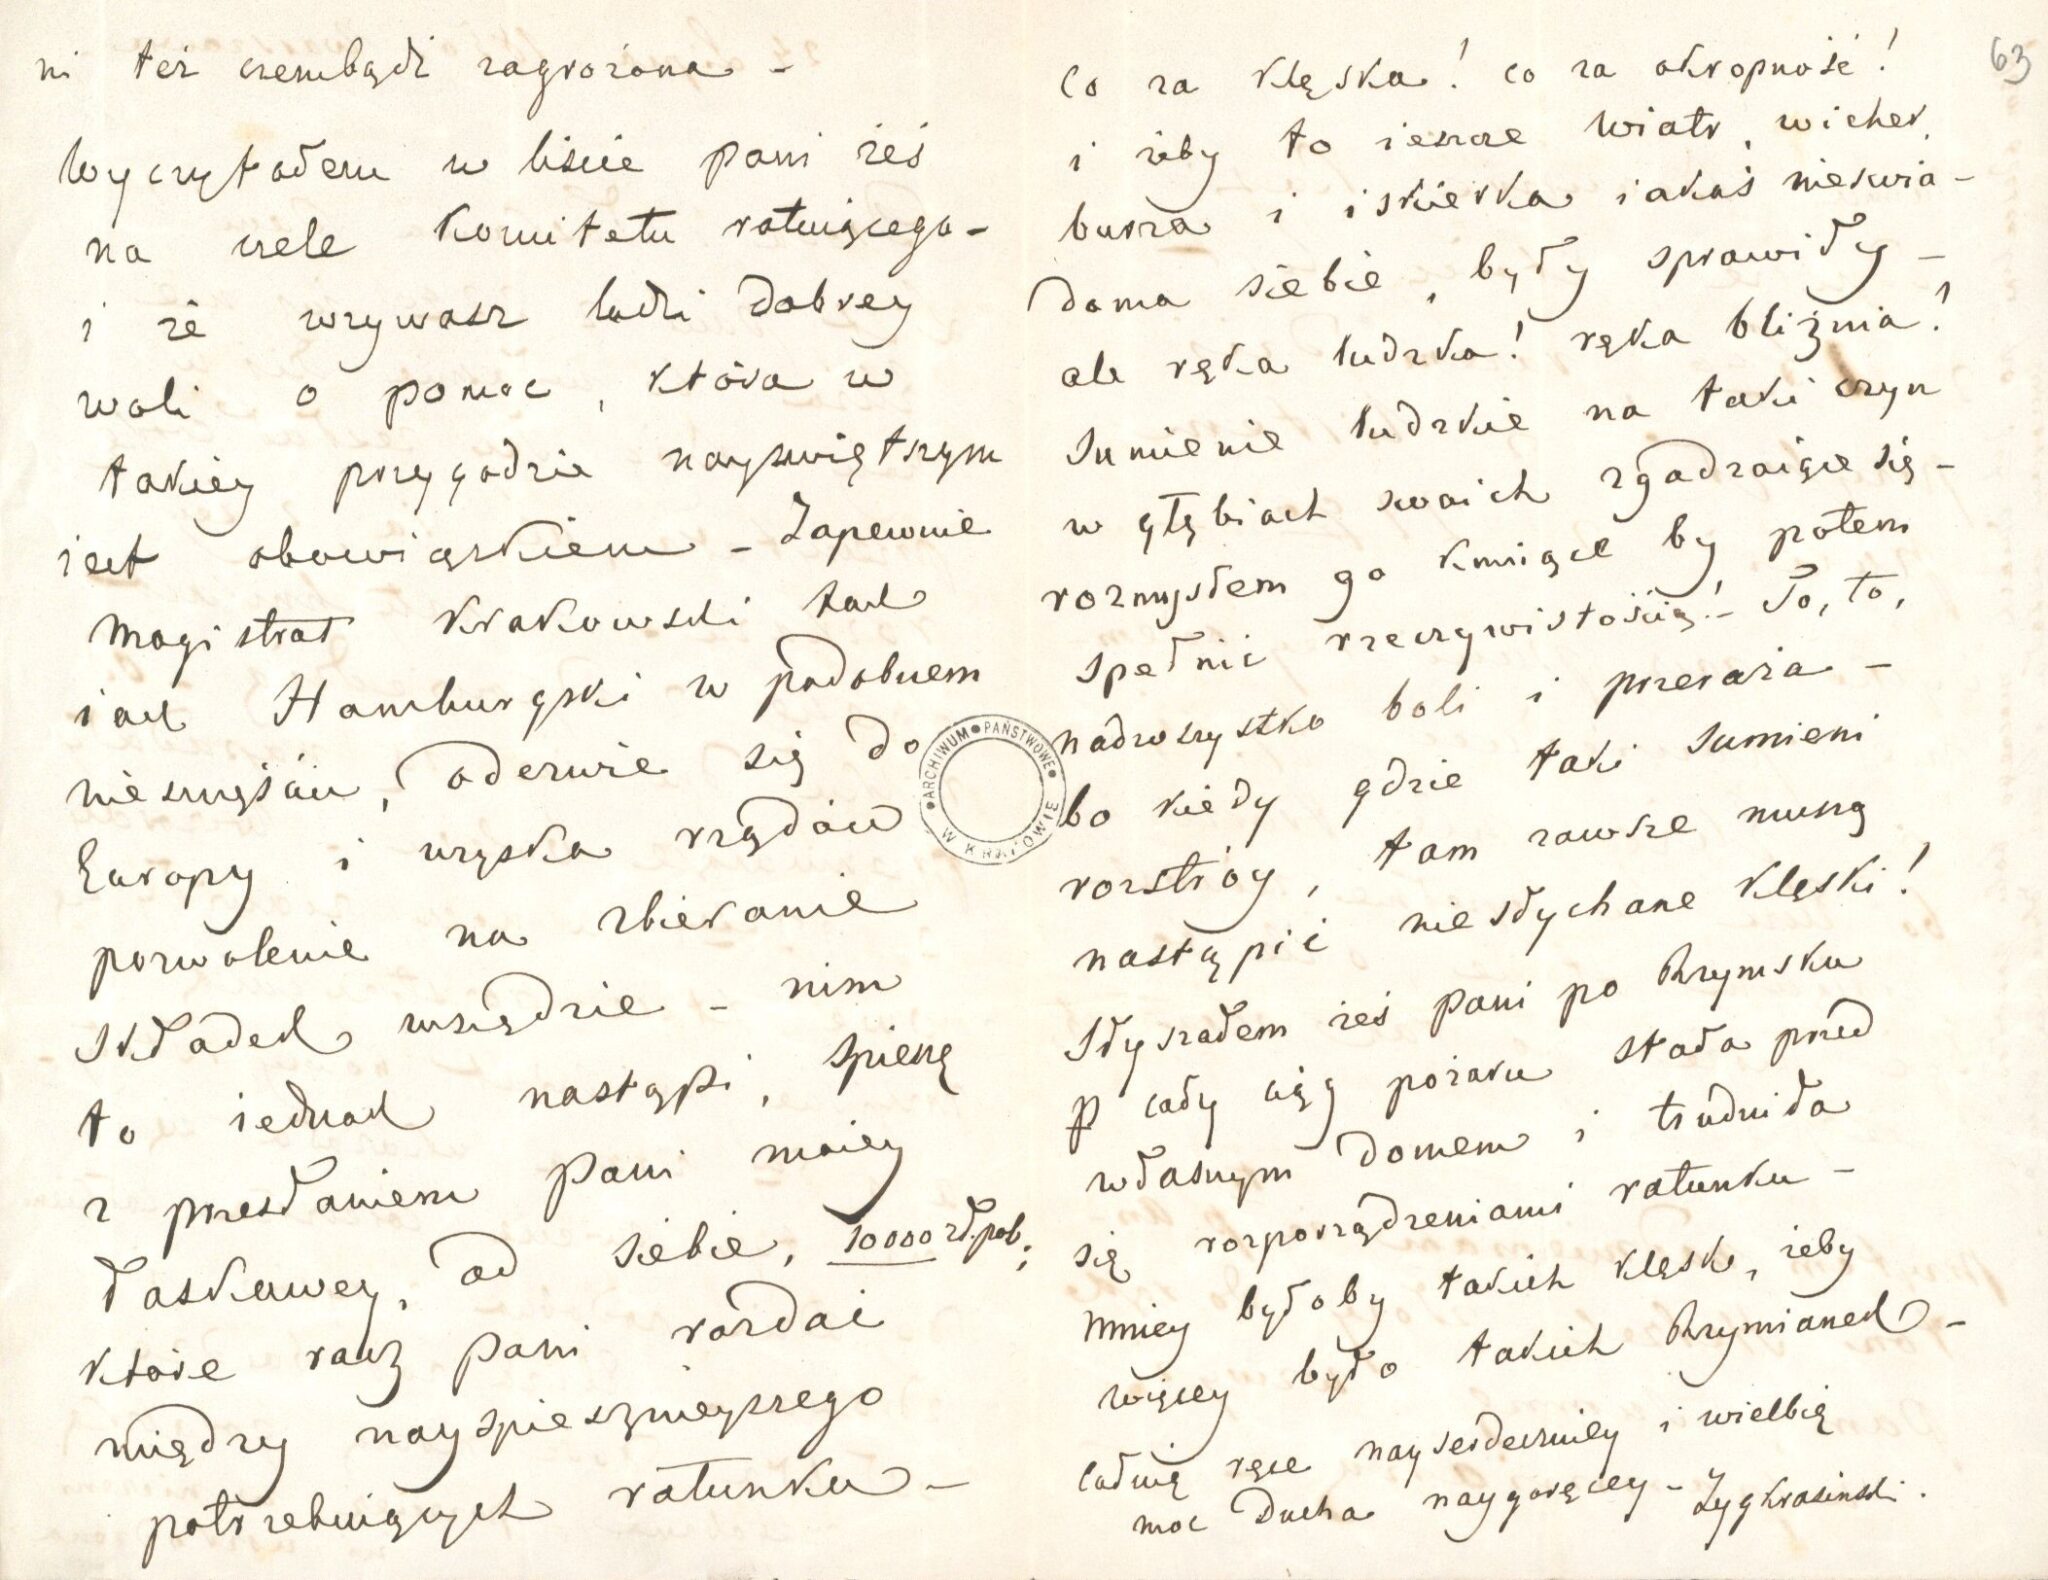 ni też czembądź zagrożona –
Wyczytałem w liście pani żeś
na czele Komitetu ratuiącego –
i że wzywasz ludzi dobrey
woli o pomoc, która w
takiey przygodzie nayświętszym
iest obowiązkiem – Zapewnie
Magistrat Krakowski tak
iak Hamburgski w podobnem
nieszczęściu, odezwie się do
Europy i uzyska rządów
pozwolenie na zbieranie
składek wszędzie – nim
to iednak nastąpi, spieszę
z przesłaniem Pani moiey
łaskawey, od siebie, 10000 zł. pol;
które racz Pani rozdać
między nayspiesznieyszego
potrzebuiących ratunku –
63
Co za klęska! co za okropność!
i żeby to ieszcze wiatr, wicher,
burza i iskierka iakaś nieświa-
doma siebie, były sprawiły –
ale ręka ludzka! ręka bliźnia!
Sumienie ludzkie na taki czyn
w głębiach swoich zgadzaiące się –
rozmysłem go knuiące by potem
spełnić rzeczywistością! – To, to,
nadwszystko boli i przeraża –
bo kiedy gdzie taki sumieni
rozstróy, tam zawsze muszą
nastąpić niesłychane klęski!
Słyszałem żeś Pani po Rzymsku
p cały ciąg pożaru stała przed
własnym domem i trudniła
się rozporządzeniami ratunku –
Mniey byłoby takich klęsk, żeby
więcey było takich Rzymianek –
Całuię ręce nayserdeczniey i wielbię
moc Ducha naygoręcey – Zyg Krasiński.
ARCHIWUM PAŃSTWOWE W KRAKOWIE